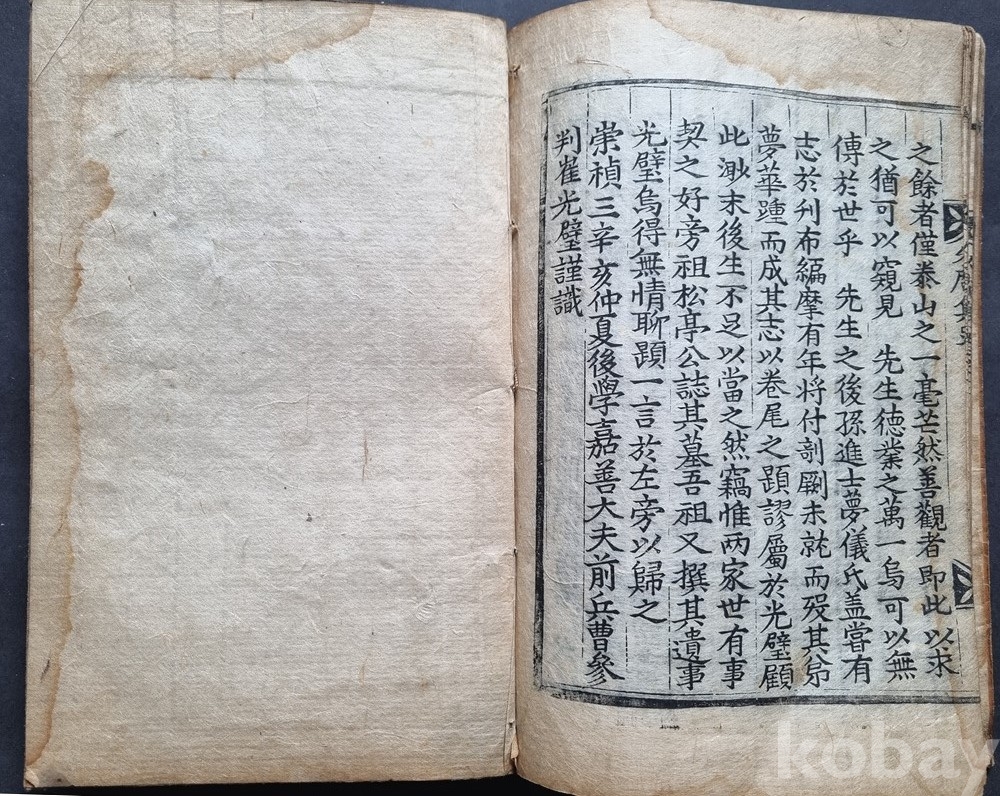 之餘者僅泰山之一毫芒然善觀者即此以求
之猶可以窺見 先生德業之萬一烏可以無
傳於世乎 先生之後孫進士夢儀氏盖嘗有
志於刋布編摩有年將付剞劂未就而歿其弟
夢華踵而成其志以卷尾之題謬屬於光璧顧
此渺末後生不足以當之然竊惟两家世有事
契之好旁祖松亭公誌其墓吾祖又撰其遺事
光璧烏得無情聊題一言於左旁以歸之
崇禎三辛亥仲夏後學嘉善大夫前兵曹參
判崔光璧謹識
kobay